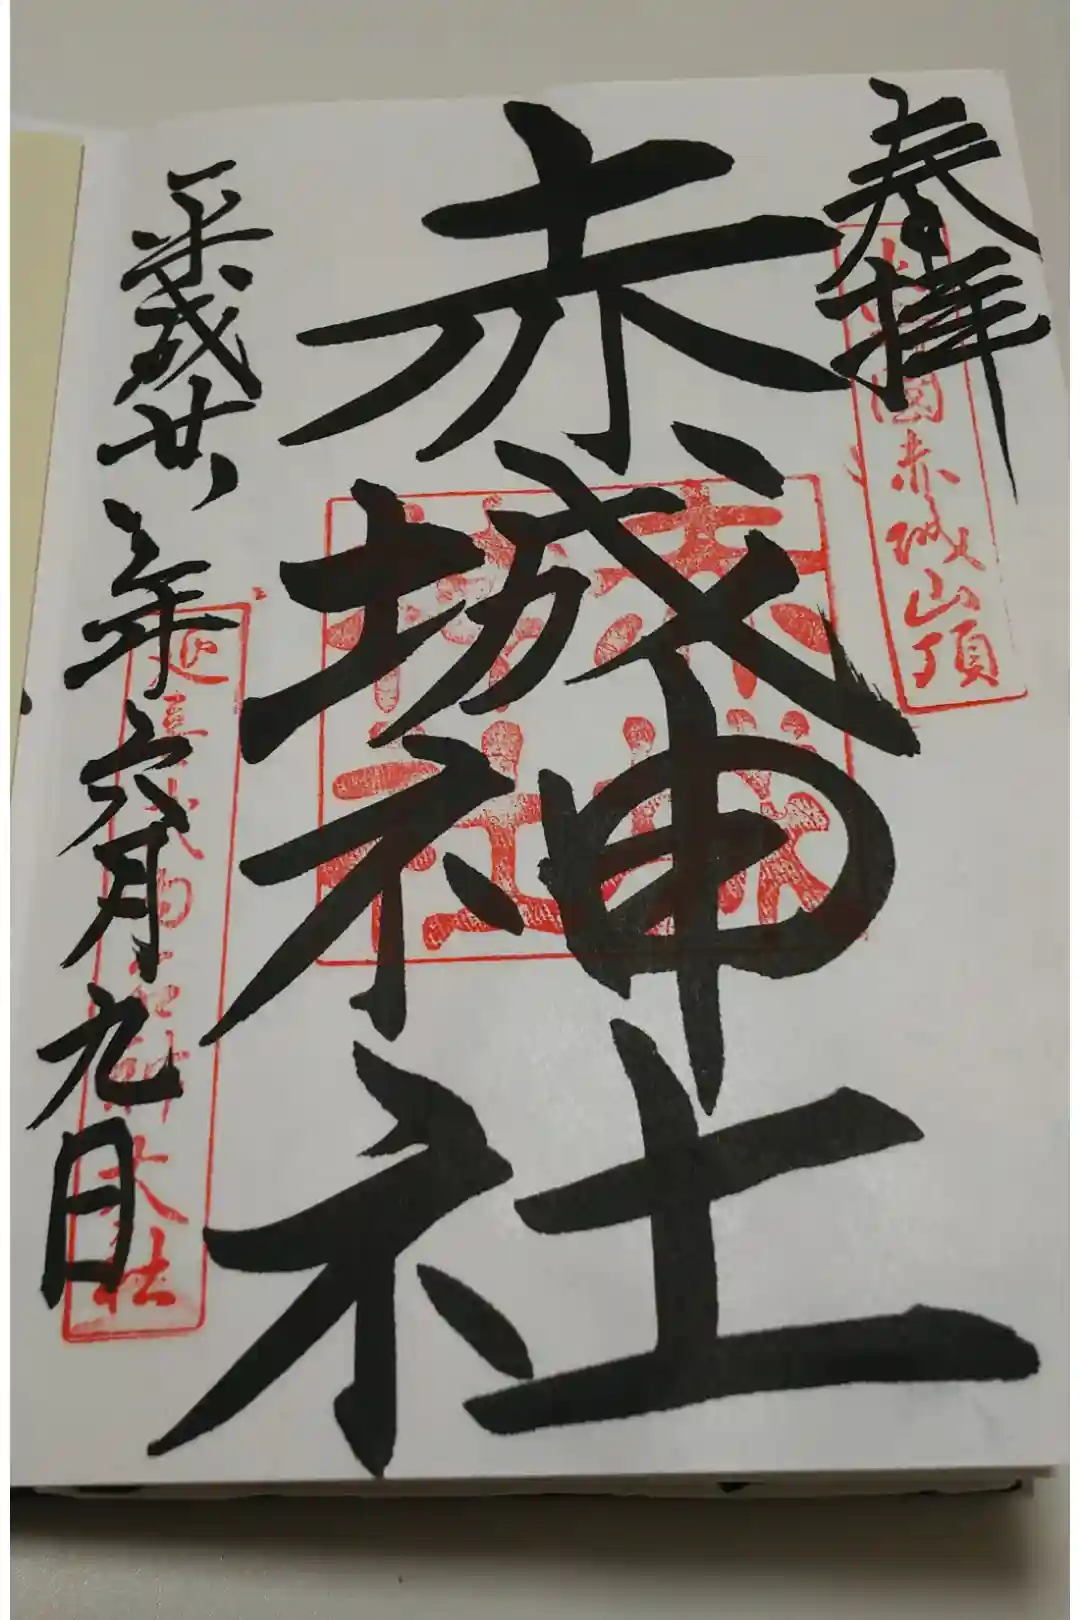 奉拝
國赤城山頂
赤城神社
赤城神社
平成廿年六月九日
延喜式内名神大社